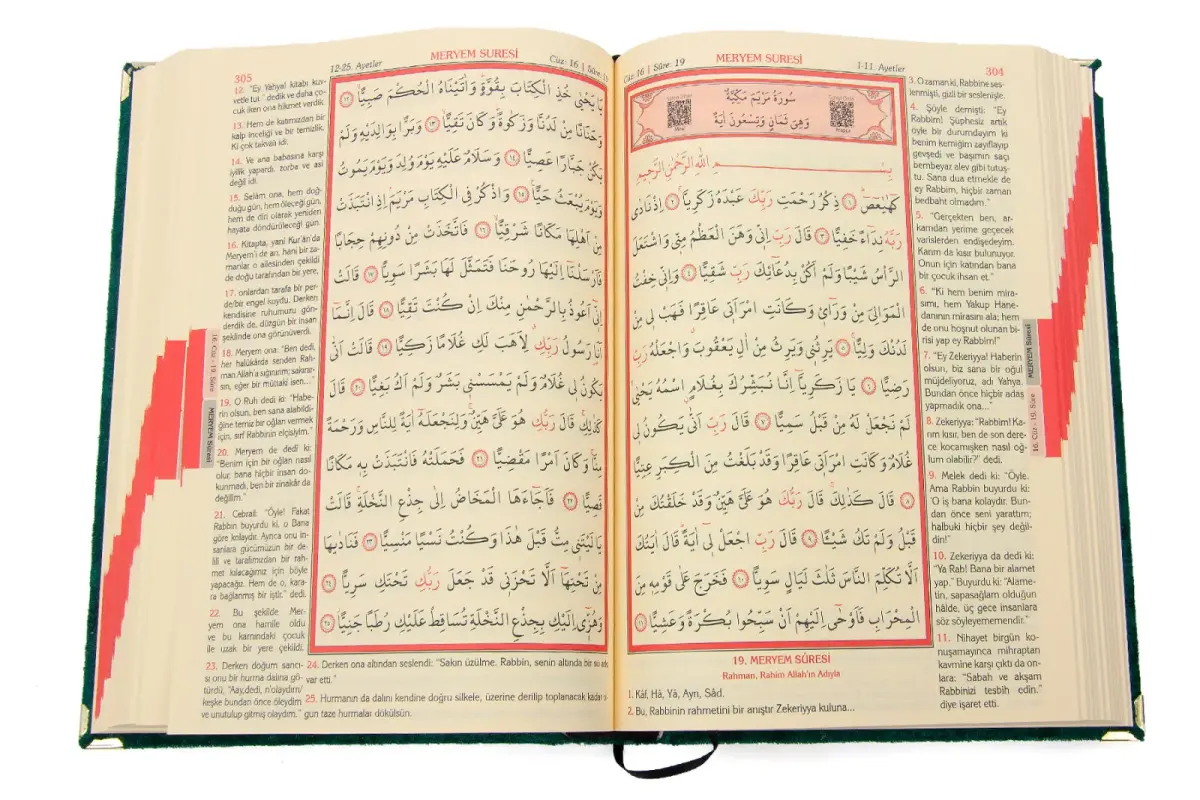 304
MERYEM SURESİ
Cüz: 16 | Sûre: 19
1-11. Ayetler
سُورَةُ مَرْيَمَ مَكِّيَّةٌ
وَهِيَ ثَمَانٍ وَتِسْعُونَ اٰيَةً
بِسْمِ اللّٰهِ الرَّحْمٰنِ الرَّحِيمِ
كٓهٰيٰعٓصٓ ﴿١﴾ ذِكْرُ رَحْمَتِ رَبِّكَ عَبْدَهُ زَكَرِيَّا ﴿٢﴾ اِذْ نَادٰى
رَبَّهُ نِدَٓاءً خَفِيًّا ﴿٣﴾ قَالَ رَبِّ اِنّ۪ي وَهَنَ الْعَظْمُ مِنّ۪ي وَاشْتَعَلَ
الرَّأْسُ شَيْبًا وَلَمْ اَكُنْ بِدُعَٓائِكَ رَبِّ شَقِيًّا ﴿٤﴾ وَاِنّ۪ي خِفْتُ
الْمَوَالِيَ مِنْ وَرَٓاء۪ي وَكَانَتِ امْرَاَت۪ي عَاقِرًا فَهَبْ ل۪ي مِنْ
لَدُنْكَ وَلِيًّا ﴿٥﴾ يَرِثُن۪ي وَيَرِثُ مِنْ اٰلِ يَعْقُوبَ وَاجْعَلْهُ رَبِّ
رَضِيًّا ﴿٦﴾ يَا زَكَرِيَّٓا اِنَّا نُبَشِّرُكَ بِغُلَامٍ اسْمُهُ يَحْيٰى
لَمْ نَجْعَلْ لَهُ مِنْ قَبْلُ سَمِيًّا ﴿٧﴾ قَالَ رَبِّ اَنّٰى يَكُونُ ل۪ي
غُلَامٌ وَكَانَتِ امْرَاَت۪ي عَاقِرًا وَقَدْ بَلَغْتُ مِنَ الْكِبَرِ عِتِيًّا
﴿٨﴾ قَالَ كَذٰلِكَ قَالَ رَبُّكَ هُوَ عَلَيَّ هَيِّنٌ وَقَدْ خَلَقْتُكَ مِنْ
قَبْلُ وَلَمْ تَكُ شَيْـًٔا ﴿٩﴾ قَالَ رَبِّ اجْعَلْ ل۪ٓي اٰيَةً قَالَ اٰيَتُكَ
اَلَّا تُكَلِّمَ النَّاسَ ثَلٰثَ لَيَالٍ سَوِيًّا ﴿١٠﴾ فَخَرَجَ عَلٰى قَوْمِه۪ مِنَ
الْمِحْرَابِ فَاَوْحٰٓى اِلَيْهِمْ اَنْ سَبِّحُوا بُكْرَةً وَعَشِيًّا ﴿١١﴾
19. MERYEM SÛRESİ
Rahman, Rahim Allah'ın Adıyla
1. Kâf, Hâ, Yâ, Ayn, Sâd.
2. Bu, Rabbinin rahmetini bir anıştır Zekeriyya kuluna...
3. O zaman ki, Rabbine ses-
lenmişti, gizli bir seslenişle.
4. Şöyle demişti: "Ey
Rabbim! Şüphesiz artık
öyle bir durumdayım ki
benim kemiğim zayıflayıp
gevşedi ve başımın saçı
bembeyaz alev gibi tutuş-
tu. Sana dua etmekle de
ey Rabbim, hiçbir zaman
bedbaht olmadım."
5. "Gerçekten ben, ar-
kamdan yerime geçecek
varislerden endişedeyim.
Karım da kısır bulunuyor.
Onun için katından bana
bir çocuk ihsan et."
6. "Ki hem benim mira-
sımı, hem Yakup Hane-
danının mirasını ala; hem
de onu hoşnut olunan bi-
risi yap ey Rabbim!"
7. "Ey Zekeriyya! Haberin
olsun, biz sana bir oğul
müjdeliyoruz, adı Yahya.
Bundan önce hiçbir adaş
yapmadık ona..."
8. Zekeriyya: "Rabbim! Ka-
rım kısır, ben de son dere-
ce kocamışken nasıl oğ-
lum olabilir?" dedi.
9. Melek dedi ki: "Öyle.
Ama Rabbin buyurdu ki:
'O iş bana kolaydır. Bun-
dan önce seni yarattım;
halbuki hiçbir şey değil-
din!"
10. Zekeriyya da dedi ki:
"Ya Rab! Bana bir alamet
yap." Buyurdu ki: "Alame-
tin, sapasağlam olduğun
hâlde, üç gece insanlara
söz söyleyememendir."
11. Nihayet birgün ko-
nuşamayınca mihraptan
kavmine karşı çıktı da on-
lara: "Sabah ve akşam
Rabbinizi tesbih edin."
diye işaret etti.
MERYEM SÛRESİ
16. Cüz - 19. Sûre
305
12-25. Ayetler
MERYEM SURESİ
Cüz: 16 | Sûre: 19
يَا يَحْيٰى خُذِ الْكِتَابَ بِقُوَّةٍ وَاٰتَيْنَاهُ الْحُكْمَ صَبِيًّا ﴿١٢﴾
وَحَنَانًا مِنْ لَدُنَّا وَزَكٰوةً وَكَانَ تَقِيًّا ﴿١٣﴾ وَبَرًّا بِوَالِدَيْهِ وَلَمْ
يَكُنْ جَبَّارًا عَصِيًّا ﴿١٤﴾ وَسَلَامٌ عَلَيْهِ يَوْمَ وُلِدَ وَيَوْمَ يَمُوتُ
وَيَوْمَ يُبْعَثُ حَيًّا ﴿١٥﴾ وَاذْكُرْ فِي الْكِتَابِ مَرْيَمَ اِذِ انْتَبَذَتْ
مِنْ اَهْلِهَا مَكَانًا شَرْقِيًّا ﴿١٦﴾ فَاتَّخَذَتْ مِنْ دُونِهِمْ حِجَابًا
فَاَرْسَلْنَٓا اِلَيْهَا رُوحَنَا فَتَمَثَّلَ لَهَا بَشَرًا سَوِيًّا ﴿١٧﴾ قَالَتْ
اِنّ۪ٓي اَعُوذُ بِالرَّحْمٰنِ مِنْكَ اِنْ كُنْتَ تَقِيًّا ﴿١٨﴾ قَالَ اِنَّمَٓا
اَنَا رَسُولُ رَبِّكِ لِاَهَبَ لَكِ غُلَامًا زَكِيًّا ﴿١٩﴾ قَالَتْ اَنّٰى
يَكُونُ ل۪ي غُلَامٌ وَلَمْ يَمْسَسْن۪ي بَشَرٌ وَلَمْ اَكُ بَغِيًّا ﴿٢٠﴾ قَالَ
كَذٰلِكِ قَالَ رَبُّكِ هُوَ عَلَيَّ هَيِّنٌ وَلِنَجْعَلَهُٓ اٰيَةً لِلنَّاسِ وَرَحْمَةً
مِنَّا وَكَانَ اَمْرًا مَقْضِيًّا ﴿٢١﴾ فَحَمَلَتْهُ فَانْتَبَذَتْ بِه۪ مَكَانًا
قَصِيًّا ﴿٢٢﴾ فَاَجَٓاءَهَا الْمَخَاضُ اِلٰى جِذْعِ النَّخْلَةِ قَالَتْ
يَا لَيْتَن۪ي مِتُّ قَبْلَ هٰذَا وَكُنْتُ نَسْيًا مَنْسِيًّا ﴿٢٣﴾ فَنَادٰيهَا
مِنْ تَحْتِهَٓا اَلَّا تَحْزَن۪ي قَدْ جَعَلَ رَبُّكِ تَحْتَكِ سَرِيًّا ﴿٢٤﴾
وَهُزّ۪ٓي اِلَيْكِ بِجِذْعِ النَّخْلَةِ تُسَاقِطْ عَلَيْكِ رُطَبًا جَنِيًّا ﴿٢٥﴾
12. "Ey Yahya! kitabı kuv-
vetle tut." dedik ve daha ço-
cuk iken ona hikmet verdik.
13. Hem de katımızdan bir
kalp inceliği ve bir temizlik.
Ki çok takvaa idi.
14. Ve ana babasına karşı
iyilik yapardı, zorba ve asi
değil idi.
15. Selâm ona, hem doğ-
duğu gün, hem öleceği gün,
hem de diri olarak yeniden
hayata döndürüleceği gün.
16. Kitapta, yani Kur'ân'da
Meryem'i de an, hani bir za-
manlar o ailesinden çekildi
de doğu tarafından bir yere,
17. onlardan tarafa bir per-
de/bir engel koydu. Derken
kendisine ruhumuzu gön-
derdik de, düzgün bir insan
şeklinde ona görünüverdi.
18. Meryem ona: "Ben dedi,
her halükârda senden Rah-
man Allah'a sığınırım; sakınır-
sın, eğer bir müttaki isen..."
19. O Ruh dedi ki: "Habe-
rin olsun, ben sana alabildi-
ğine temiz bir oğlan vermek
için, sırf Rabbinin elçisiyim."
20. Meryem de dedi ki:
"Benim için bir oğlan nasıl
olur, bana hiçbir insan do-
kunmadı, ben bir zinakâr da
değilim."
21. Cebrail: "Öyle! Fakat
Rabbin buyurdu ki, o Bana
göre kolaydır. Ayrıca onu in-
sanlara gücümüzün bir de-
lili ve tarafımızdan bir rah-
met kılacağımız için böyle
yapacağız. Hem de o, kara-
ra bağlanmış bir iştir." dedi.
22. Bu şekilde Mer-
yem ona hamile oldu
ve bu karnındaki çocuk
ile uzak bir yere çekildi.
23. Derken doğum sancı-
sı onu bir hurma dalına gö-
türdü, "Aay,dedi, n'olaydım/
keşke bundan önce öleydim
ve unutulup gitmiş olaydım."
24. Derken ona altından seslendi: "Sakın üzülme. Rabbin, senin altında bir su arkı
var etti."
25. Hurmanın da dalını kendine doğru silkele, üzerine derilip toplanacak kadar ol-
gun taze hurmalar dökülsün.
16. Cüz - 19. Sûre
MERYEM SÛRESİ